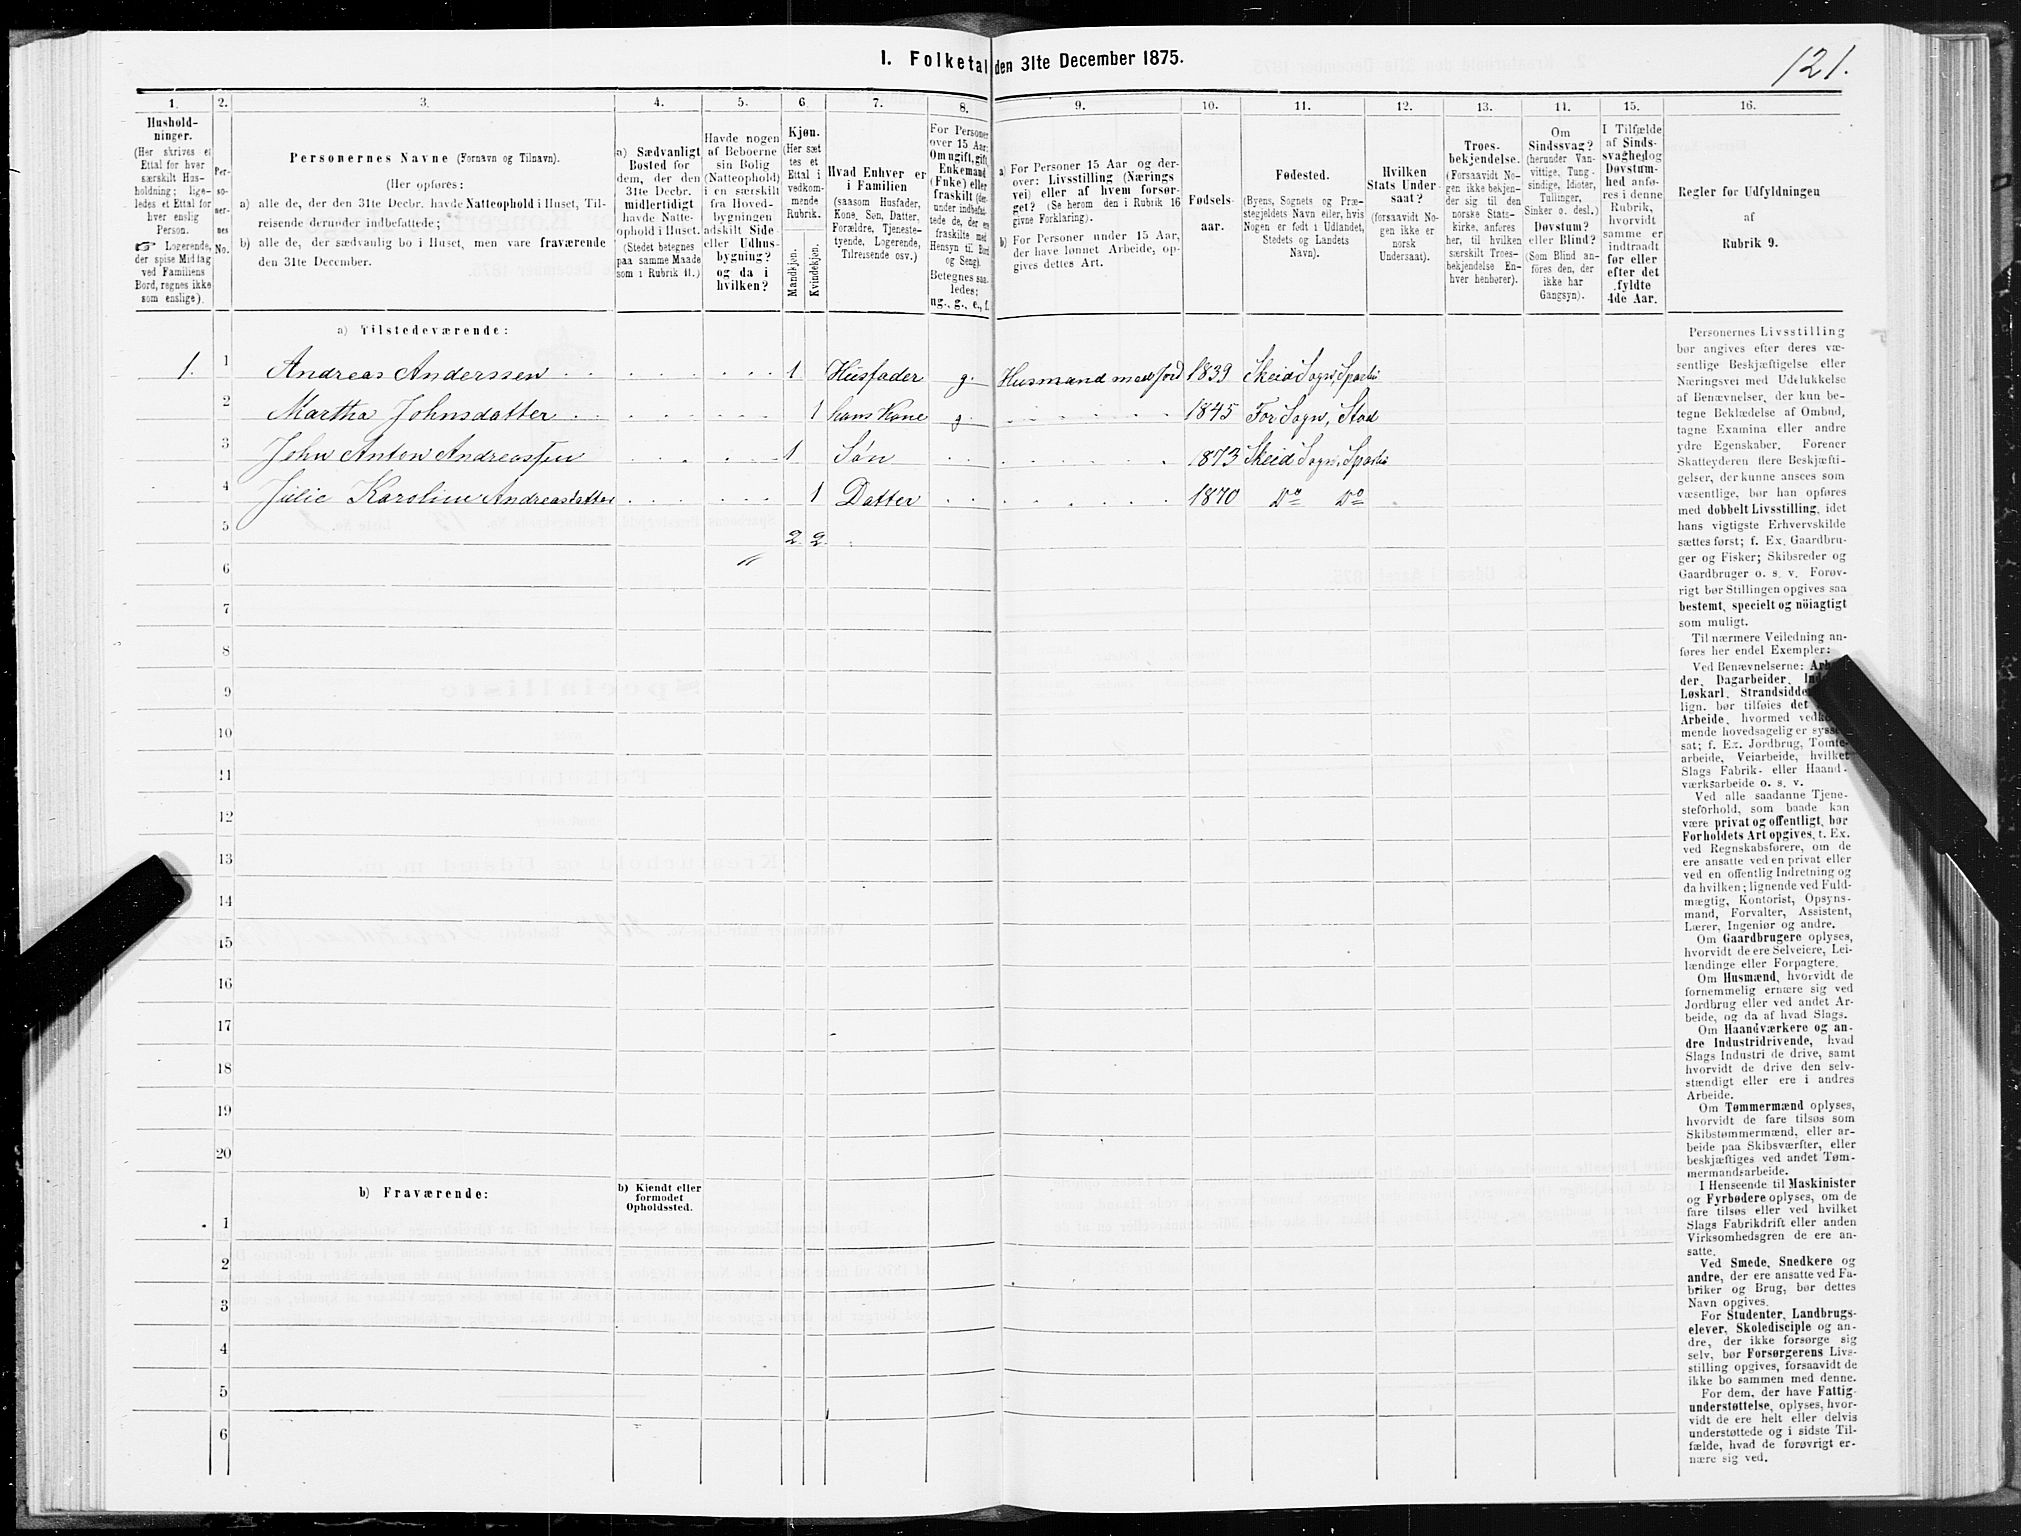 I. Folketal den 31te December 1875.
121.
1.
2.
3.
4.
5.
6.
7.
8.
9.
10.
11.
12.
13.
14.
15.
16.
Hushold-
ninger.
(Her skrives et
Ettal for hver
særskilt Hus-
holdning; lige-
ledes et Ettal for
hver enslig
Person.
☞ Logerende,
der spise Middag
ved Familiens
Bord, regnes ikke
som enslige).
Per-
so-
ner-
nes
No.
Personernes Navne (Fornavn og Tilnavn).
(Her opføres:
a) alle de, der den 31te Decbr. havde Natteophold i Huset, Til-
reisende derunder indbefattede;
b) alle de, der sædvanlig bo i Huset, men vare fraværende
den 31te December.
a) Sædvanligt
Bosted for
dem, der den
31te Decbr.
midlertidigt
havde Natte-
ophold i Huset.
(Stedet betegnes
paa samme Maade
som i Rubrik 11.)
Havde nogen
af Beboerne
sin Bolig
(Natteophold)
i en særskilt
fra Hoved-
bygningen
adskilt Side-
eller Udhus-
bygning?
og da i
hvilken?
Kjøn.
(Her sæt-
tes et
Ettal i
vedkom-
mende
Rubrik.
Mandkjøn.
Kvindekjøn.
Hvad Enhver er
i Familien
(saasom Husfader,
Kone, Søn, Datter,
Forældre, Tjeneste-
tyende, Logerende,
Tilreisende osv.)
For Personer
over 15 Aar:
Om ugift, gift,
Enkemand
(Enke) eller
fraskilt (der-
under indbefat-
tede de, der ere
fraskilte med
Hensyn til Bord
og Seng).
Betegnes saa-
ledes:
ug., g., e., f.
a) For Personer 15 Aar og der-
over: Livsstilling (Nærings-
vei) eller af hvem forsør-
get? (Se herom den i Rubrik 16
givne Forklaring).
b) For Personer under 15 Aar,
der have lønnet Arbeide, op-
gives dettes Art.
Fødsels-
aar.
Fødested.
(Byens, Sognets og Præ-
stegjeldets Navn eller, hvis
Nogen er født i Udlandet,
Stedets og Landets
Navn).
Hvilken
Stats Under-
saat?
(forsaavidt No-
gen ikke er
norsk
Undersaat).
Troes-
bekjendelse.
(Forsaavidt No-
gen ikke bekjen-
der sig til den
norske Stats-
kirke, anføres
her, til hvilken
særskilt Troes-
bekjendelse En-
hver henhører).
Om
Sindssvag?
(herunder Van-
vittige, Tung-
sindige, Idioter,
Tullinger,
Sinker o. desl.)
Døvstum?
eller Blind?
(Som Blind an-
føres den, der
ikke har
Gangsyn).
I Tilfælde
af Sinds-
svaghed og
Døvstum-
hed anfø-
res i denne
Rubrik,
hvorvidt
samme er
indtraadt
før eller
efter det
fyldte
4de Aar.
Regler for Udfyldningen
af
Rubrik 9.
a) Tilstedeværende:
1. 1 Andreas Anderssen 1 Husfader g. Husmand med Jord 1839 Skeid Sogn,
2 Martha Johnsdatter 1 hans Kone g 1845 For Sogn, Stod
3 John Anton Andreassen 1 Søn 1873 Skeid Sogn,
4 Julie Karoline Andreasdatter 1 Datter 1870 Do Do
5 2 2
6
7
8
9
10
11
12
13
14
15
16
17
18
19
20
b) Fraværende:
b) Kjendt eller
formodet
Opholdssted.
1
2
3
4
5
6
Personernes Livsstilling
bør angives efter deres væ-
sentlige Beskjæftigelse eller
Næringsvei med Udelukkelse
af Benævnelser, der kun be-
tegne Beklædelse af Ombud,
tagne Examina eller andre
ydre Egenskaber. Forener
Skatteyderen flere Beskjæfti-
gelser, der kunne ansees som
væsentlige, bør han opføres
med dobbelt Livsstilling, idet
hans vigtigste Erhvervskilde
sættes først; f. Ex. Gaardbru-
ger og Fisker; Skibsreder og
Gaardbruger o. s. v. Forøv-
rigt bør Stillingen opgives saa
bestemt, specielt og nöiagtigt
som muligt.
Til nærmere Veiledning an-
føres her endel Exempler:
Ved Benævnelserne:
der, Dagarbeider,
Løskarl,
lign. bør tilføies det
Arbeide, hvormed
mende hovedsagelig er
sat; f. Ex. Jordbrug, Tomte-
arbeide, Veiarbeide, hvilket
Slags Fabrik- eller Haand-
værksarbeide o. s. v.
Ved alle saadanne Tjene-
steforhold, som baade kan
være privat og offentligt, bør
Forholdets Art opgives, t. Ex.
ved Regnskabsførere, om de
ere ansatte ved en privat eller
ved en offentlig Indretning og
da hvilken; lignende ved Fuld-
mægtig, Kontorist, Opsyns-
mand, Forvalter, Assistent,
Lærer, Ingeniør og andre.
Om Gaardbrugere oplyses,
hvorvidt de ere Selveiere, Lei-
lændinge eller Forpagtere.
Om Husmænd, hvorvidt de
fornemmelig ernære sig ved
Jordbrug eller ved andet Ar-
beide, og da af hvad Slags.
Om Haandværkere og an-
dre Industridrivende, hvad
Slags Industri de drive, samt
hvorvidt de drive den selv-
stændigt eller ere i andres
Arbeide.
Om Tømmermænd oplyses,
hvorvidt de fare tilsøs som
Skibstømmermænd, eller ar-
beide paa Skibsværfter, eller
beskjæftiges ved andet Tøm-
mermandsarbeide.
I Henseende til Maskinister
og Fyrbødere oplyses, om de
fare tilsøs eller ved hvilket
Slags Fabrikdrift eller anden
Virksomhedsgren de ere an-
satte.
Ved Smede, Snedkere og
andre, der ere ansatte ved Fa-
briker og Brug, bør dettes
Navn opgives.
For Studenter, Landbrugs-
elever, Skoledisciple og an-
dre, der ikke forsørge sig
selv, bør Forsørgerens Livs-
stilling opgives, forsaavidt de
ikke bo sammen med denne.
For dem, der have Fattig-
understøttelse, oplyses, hvor-
vidt de ere helt eller delvis
understøttede og i sidste Til-
fælde, hvad de forøvrigt er-
nære sig ved.